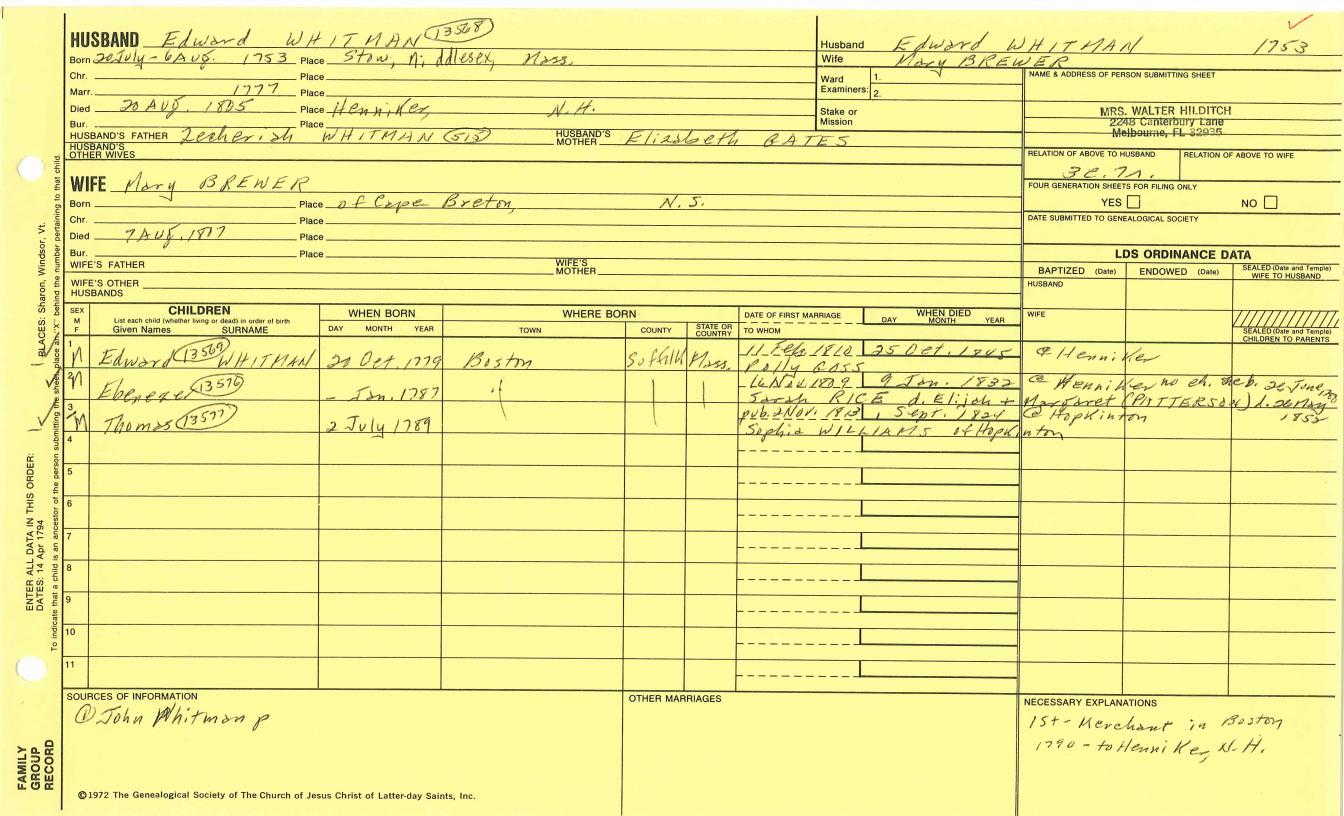 HUSBAND Edward WHITMAN 13568
Born 20 July - 6 Aug. 1753 Place Stow, Middlesex, Mass.
Chr. Place
Marr. 1777 Place
Died 20 AUG. 1805 Place Henniker, N.H.
Bur. Place
HUSBAND'S FATHER Zecheriah WHITMAN (513) HUSBAND'S MOTHER Elizabeth GATES
HUSBAND'S OTHER WIVES
Husband Edward WHITMAN 1753
Wife Mary BREWER
Ward Examiners: 1.
2.
Stake or Mission
NAME & ADDRESS OF PERSON SUBMITTING SHEET
MRS. WALTER HILDITCH
2248 Canterbury Lane
Melbourne, FL 32935
RELATION OF ABOVE TO HUSBAND RELATION OF ABOVE TO WIFE
FOUR GENERATION SHEETS FOR FILING ONLY
YES NO
DATE SUBMITTED TO GENEALOGICAL SOCIETY
WIFE Mary BREWER
Born Place of Cape Breton, N.S.
Chr. Place
Died 7 AUG. 1817 Place
Bur. Place
WIFE'S FATHER WIFE'S MOTHER
WIFE'S OTHER HUSBANDS
LDS ORDINANCE DATA
BAPTIZED (Date) ENDOWED (Date) SEALED (Date and Temple) WIFE TO HUSBAND
HUSBAND
WIFE
SEALED (Date and Temple) CHILDREN TO PARENTS
SEX M F
CHILDREN
List each child (whether living or dead) in order of birth
Given Names SURNAME
WHEN BORN
DAY MONTH YEAR
WHERE BORN
TOWN COUNTY STATE OR COUNTRY
DATE OF FIRST MARRIAGE
TO WHOM
WHEN DIED
DAY MONTH YEAR
1 M Edward 13569 WHITMAN 20 Oct. 1779 Boston Suffolk Mass. 11 Feb 1810 25 Oct. 1845 @ Henniker
Polly GOSS
2 M Ebenezer 13576 - Jan. 1787 " 16 Nov 1809 9 Jan. 1832 @ Henniker no ch. she b. 22 June,
Sarah RICE d. Elijah + Margaret (PATTERSON) d. 20 May 1852
3 M Thomas 13577 2 July 1789 pub. 2 Nov. 1813 1 Sept. 1824 @ Hopkinton
Sophia WILLIAMS of Hopkinton
4
5
6
7
8
9
10
11
SOURCES OF INFORMATION
① John Whitman p
OTHER MARRIAGES
NECESSARY EXPLANATIONS
1st - Merchant in Boston
1790 - to Henniker, N.H.
©1972 The Genealogical Society of The Church of Jesus Christ of Latter-day Saints, Inc.
FAMILY GROUP RECORD
ENTER ALL DATA IN THIS ORDER:
DATES: 14 Apr 1794
PLACES: Sharon, Windsor, Vt.
To indicate that a child is an ancestor of the person submitting the sheet, place an "X" behind the number pertaining to that child.